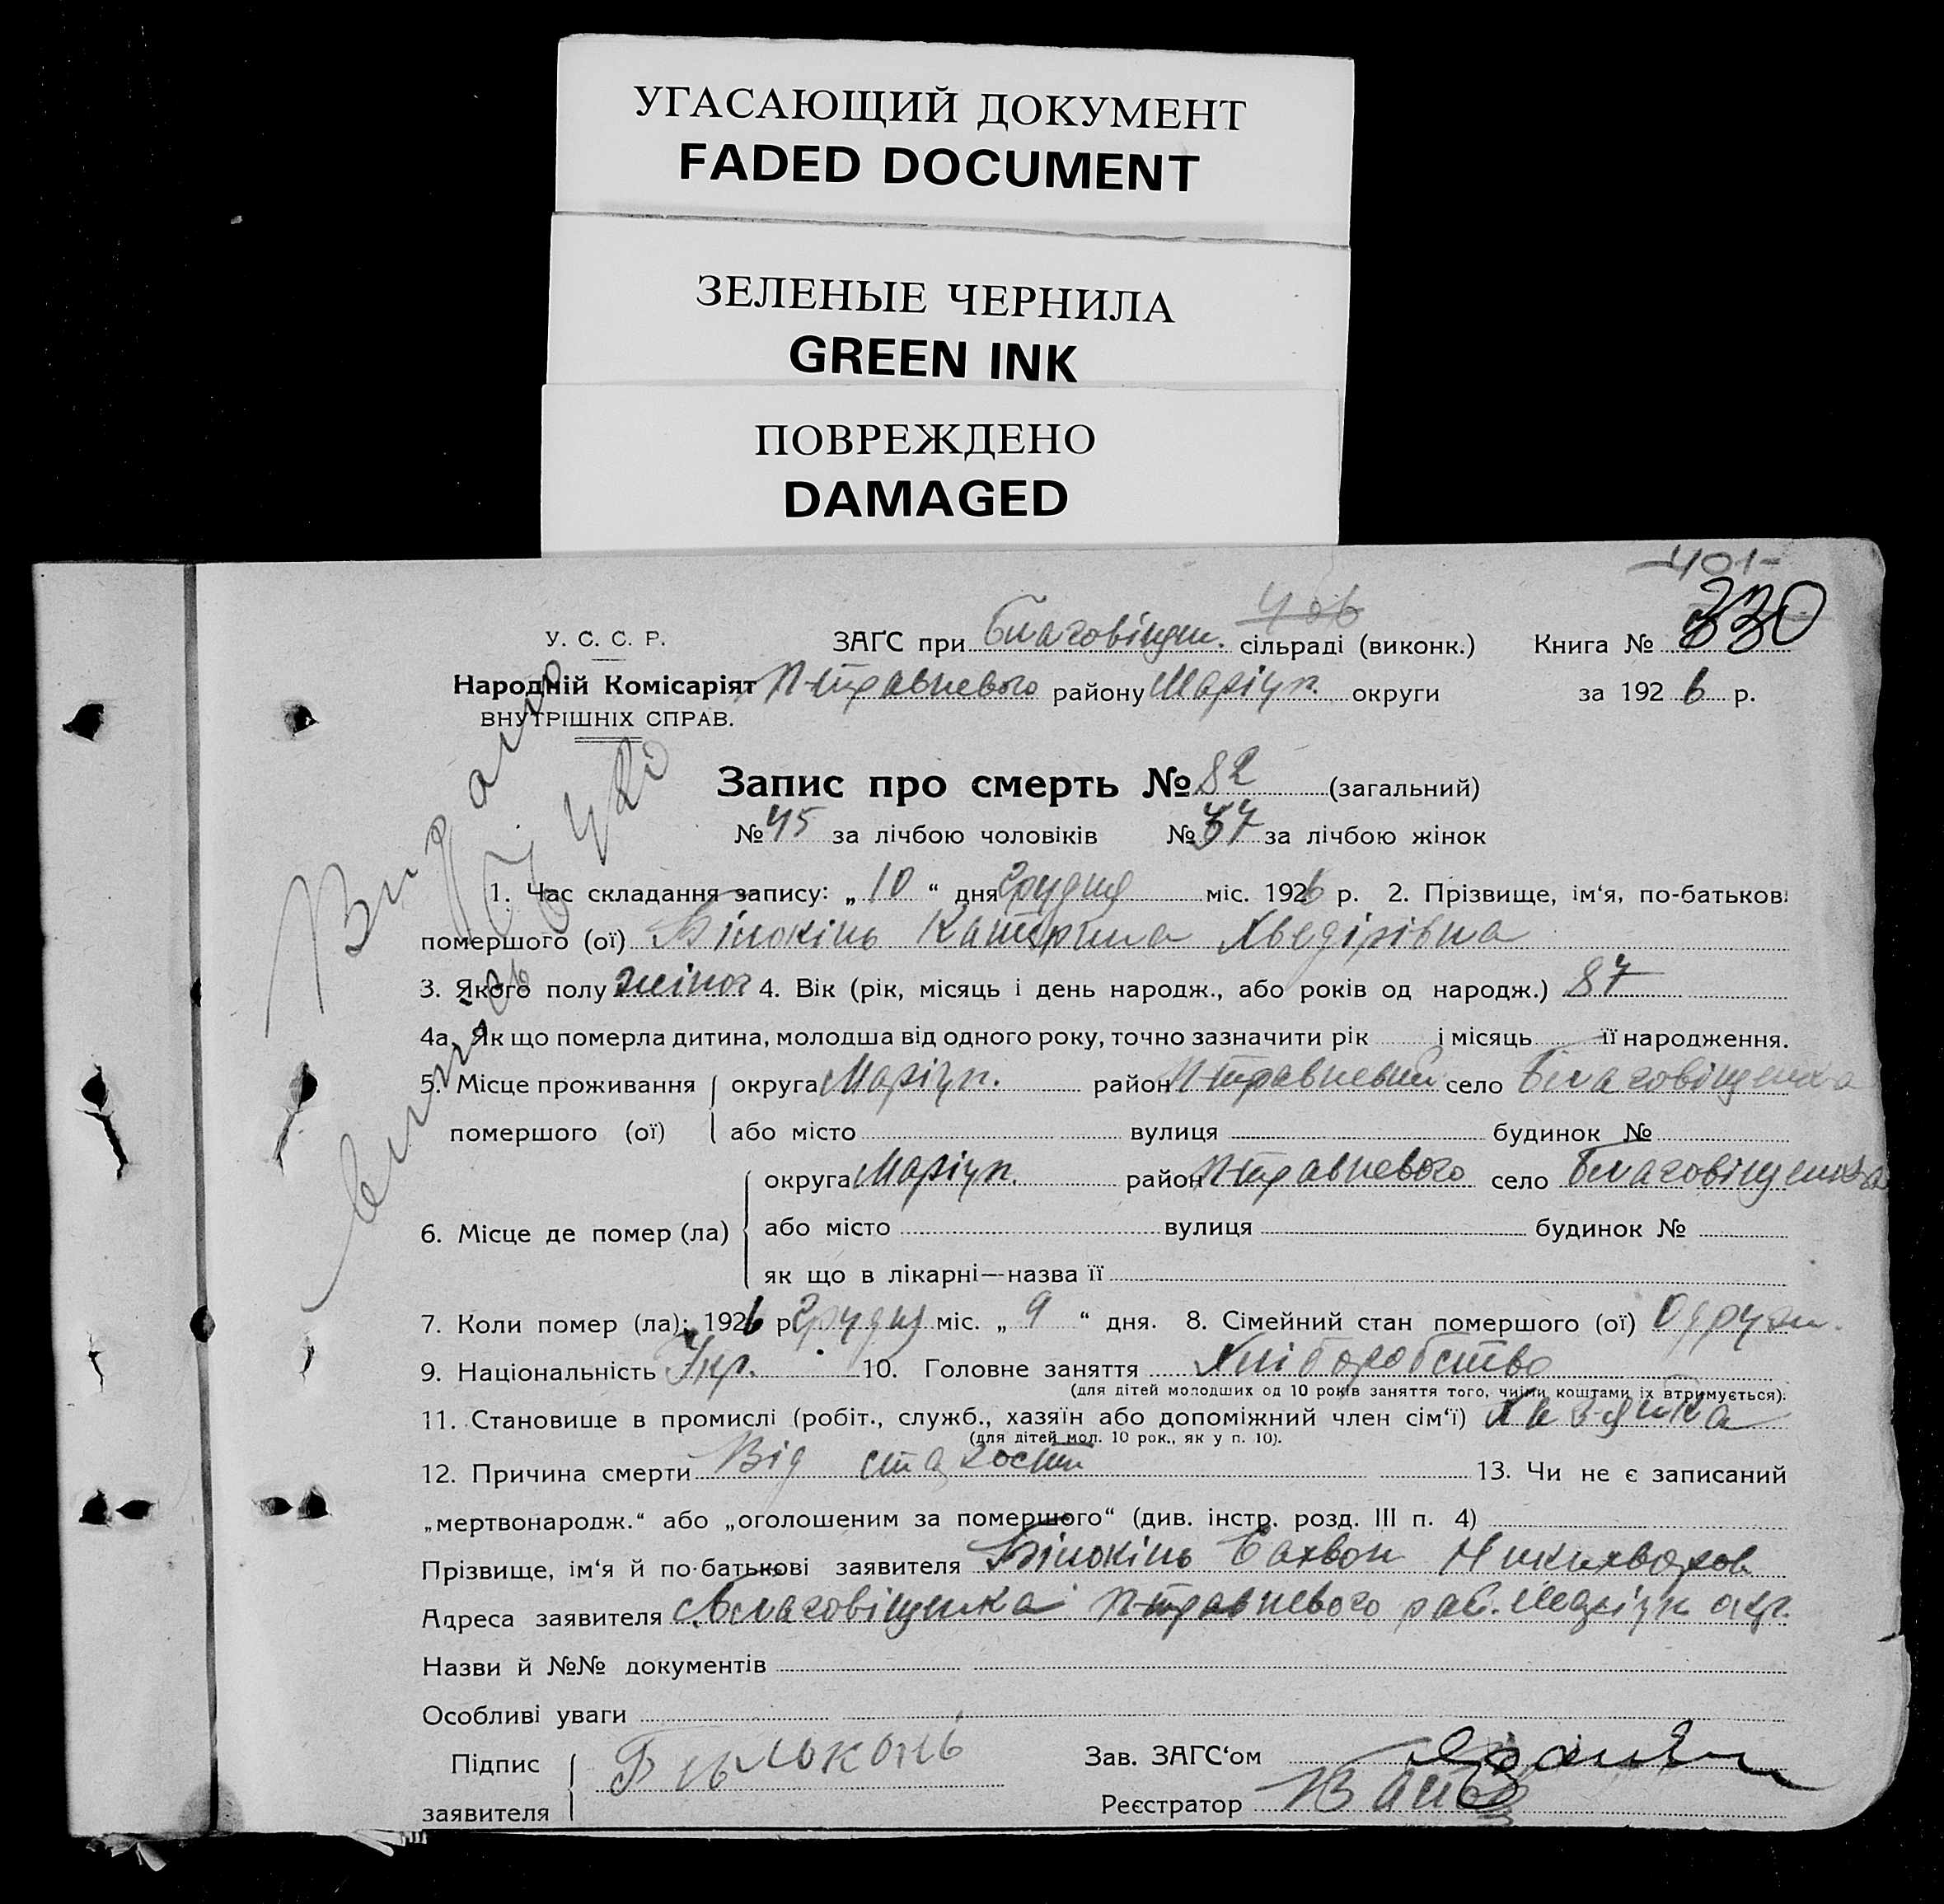 УГАСАЮЩИЙ ДОКУМЕНТ
FADED DOCUMENT
ЗЕЛЕНЫЕ ЧЕРНИЛА
GREEN INK
ПОВРЕЖДЕНО
DAMAGED
401
406
330
У. С. С. Р. ЗАГС при Благовіщен. сільраді (виконк.) Книга №
Народній Комісаріят П-травневого району Маріуп. округи за 1926 р.
ВНУТРІШНІХ СПРАВ.
Запис про смерть № 82 (загальний)
№ 45 за лічбою чоловіків № 37 за лічбою жінок
1. Час складання запису: „ 10 “ дня Грудня міс. 1926 р. 2. Прізвище, ім‘я, по-батькові
помершого (ої) Білокінь Катерина Хведірівна
3. Якого полу жіноч 4. Вік (рік, місяць і день народж., або років од народж.) 87
4а. Як що померла дитина, молодша від одного року, точно зазначити рік і місяць її народження.
5. Місце проживання округа Маріуп. район П-травневий село Благовіщенка
помершого (ої) або місто вулиця будинок №
округа Маріуп. район П-травневого село Благовіщенка
6. Місце де помер (ла) або місто вулиця будинок №
як що в лікарні—назва її
7. Коли помер (ла): 1926 р. Грудня міс. „ 9 “ дня. 8. Сімейний стан помершого (ої) Одруж.
9. Національність Укр. 10. Головне заняття Хліборобство
(для дітей молодших од 10 років заняття того, чиїми коштами їх втримується).
11. Становище в промислі (робіт., служб., хазяїн або допоміжний член сім‘ї) Хазяйка
(для дітей мол. 10 рок., як у п. 10).
12. Причина смерти Від старости 13. Чи не є записаний
„мертвонародж.“ або „оголошеним за помершого“ (див. інстр. розд. III п. 4)
Прізвище, ім‘я й по-батькові заявителя Білокінь
Адреса заявителя с. Благовіщенка П-травневого рай. Маріуп окр.
Назви й №№ документів
Особливі уваги
Підпис Бѣлоконь Зав. ЗАГС‘ом
заявителя Реєстратор
Видано